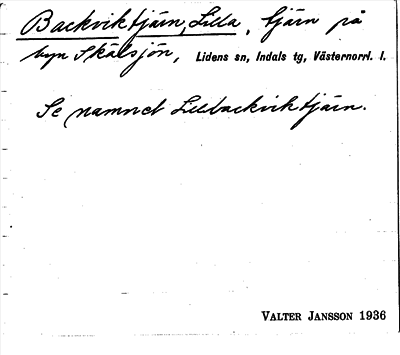 Backviktjärn, Lilla, tjärn på
byn Skälsjön, Lidens sn, Indals tg, Västernorrl. l.
Se namnet Lillbackviktjärn.
VALTER JANSSON 1936